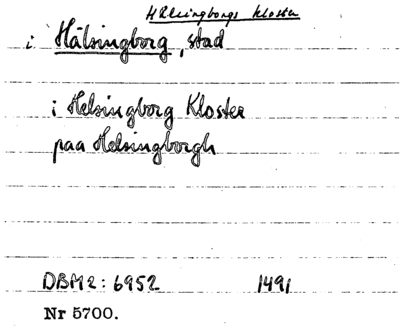 Hälsingborgs kloster
i Hälsingborg, stad
i Helsingborg Kloster
paa Helsingborgh
DBM2: 6952 1491
Nr 5700.